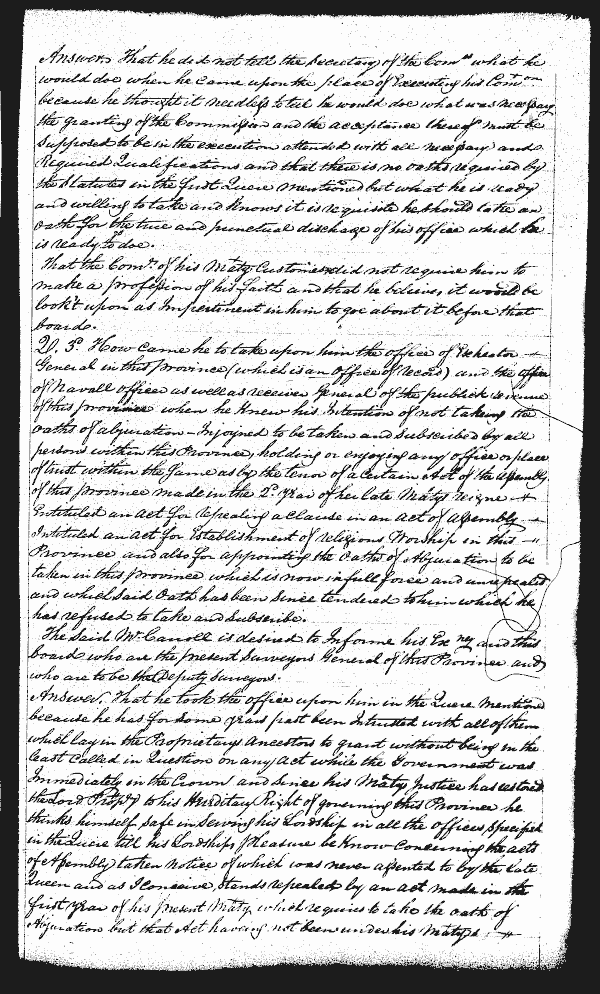 Answer. That he did not tell the Secretary of the Com.rs what he
would doe when he came upon the place of Executing his Com.on
because he thought it needless to tell he would doe what was necessary
the granting of the Commission and the acceptance thereof must be
Supposed to be in the execution attended with all necessary and
Required Qualifications and that there is no oaths required by
the Statutes in the first Quere mentioned but what he is ready
and willing to take and knows it is requisite he should take an
oath for the true and punctual discharge of his office which he
is ready to doe.
That the Com.rs of his Maty Customes did not require him to
make a profession of his faith and that he believes it would be
look't upon as Impertinent in him to goe about it before that
board.
20. 3.d How came he to take upon him the office of Escheator
General in this province (which is an office of Record) and the office
of Navall officer as well as receiver General of the publick revenue
of this province when he knew his Intention of not taking the
oaths of abjuration Injoyned to be taken and subscribed by all
persons within this Province, holding or enjoying any office or place
of trust within the Same as by the tenor of a certain Act of the Assembly
of this province made in the 2.d year of her late Matys reigne
Entituled an act for repealing a clause in an act of Assembly
Intituled an act for Establishment of religious Worship in this
Province and also for appointing the Oaths of Abjuration to be
taken in this province which is now in full force and unrepealed
and which said Oath has been since tendered to him which he
has refused to take and subscribe.
The Said Mr. Carroll is desired to Informe his Exncy and this
board who are the present Surveyors General of this Province and
who are to be the Deputy Surveyors.
Answer. That he took the office upon him in the Quere mentioned
because he has for some years past been Intrusted with all of them
which lay in the Proprietarys Ancestors to grant without being in the
least Called in Question on any Act while the Government was
Immediately in the Crown and since his Maty Justice has restored
the Lord Prop.y to his Hereditary Right of governing this Province he
thinks himself safe in serving his Lordship in all the offices specified
in the Quere till his Lordships pleasure be Know Concerning the acts
of Assembly taken notice of which was never assented to by the late
Queen and as I Conceive Stands repealed by an act made in the
first year of his present Maty, which requires to take the oath of
Abjuration but that Act having not been under his Matys